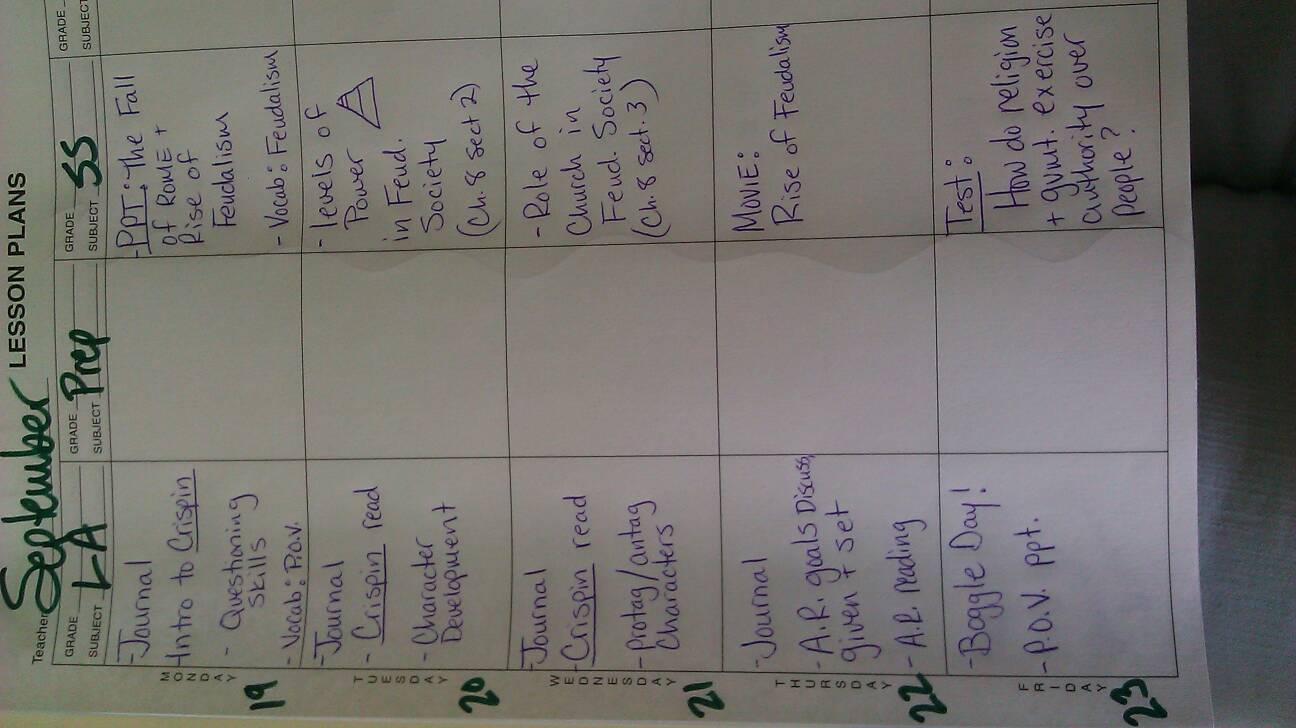 Teacher September LESSON PLANS
GRADE
SUBJECT LA
GRADE
SUBJECT Prep
GRADE
SUBJECT SS
GRADE
SUBJECT
MONDAY
19
-Journal
-Intro to Crispin
- Questioning
skills
- Vocab: P.O.V.
-PPT: the Fall
of ROME +
Rise of
Feudalism
- Vocab: Feudalism
TUESDAY
20
-Journal
- Crispin read
- Character
Development
- levels of
Power
in Feud.
Society
(Ch. 8 sect 2)
WEDNESDAY
21
-Journal
-Crispin read
-protag/antag
Characters
- Role of the
Church in
Feud. Society
(Ch. 8 sect. 3)
THURSDAY
22
-Journal
-A.R. goals Discuss,
given + set
- A.R. reading
MOVIE:
Rise of Feudalism
FRIDAY
23
-Boggle Day!
-P.O.V. ppt.
Test:
How do religion
+ gvmt. exercise
authority over
people?